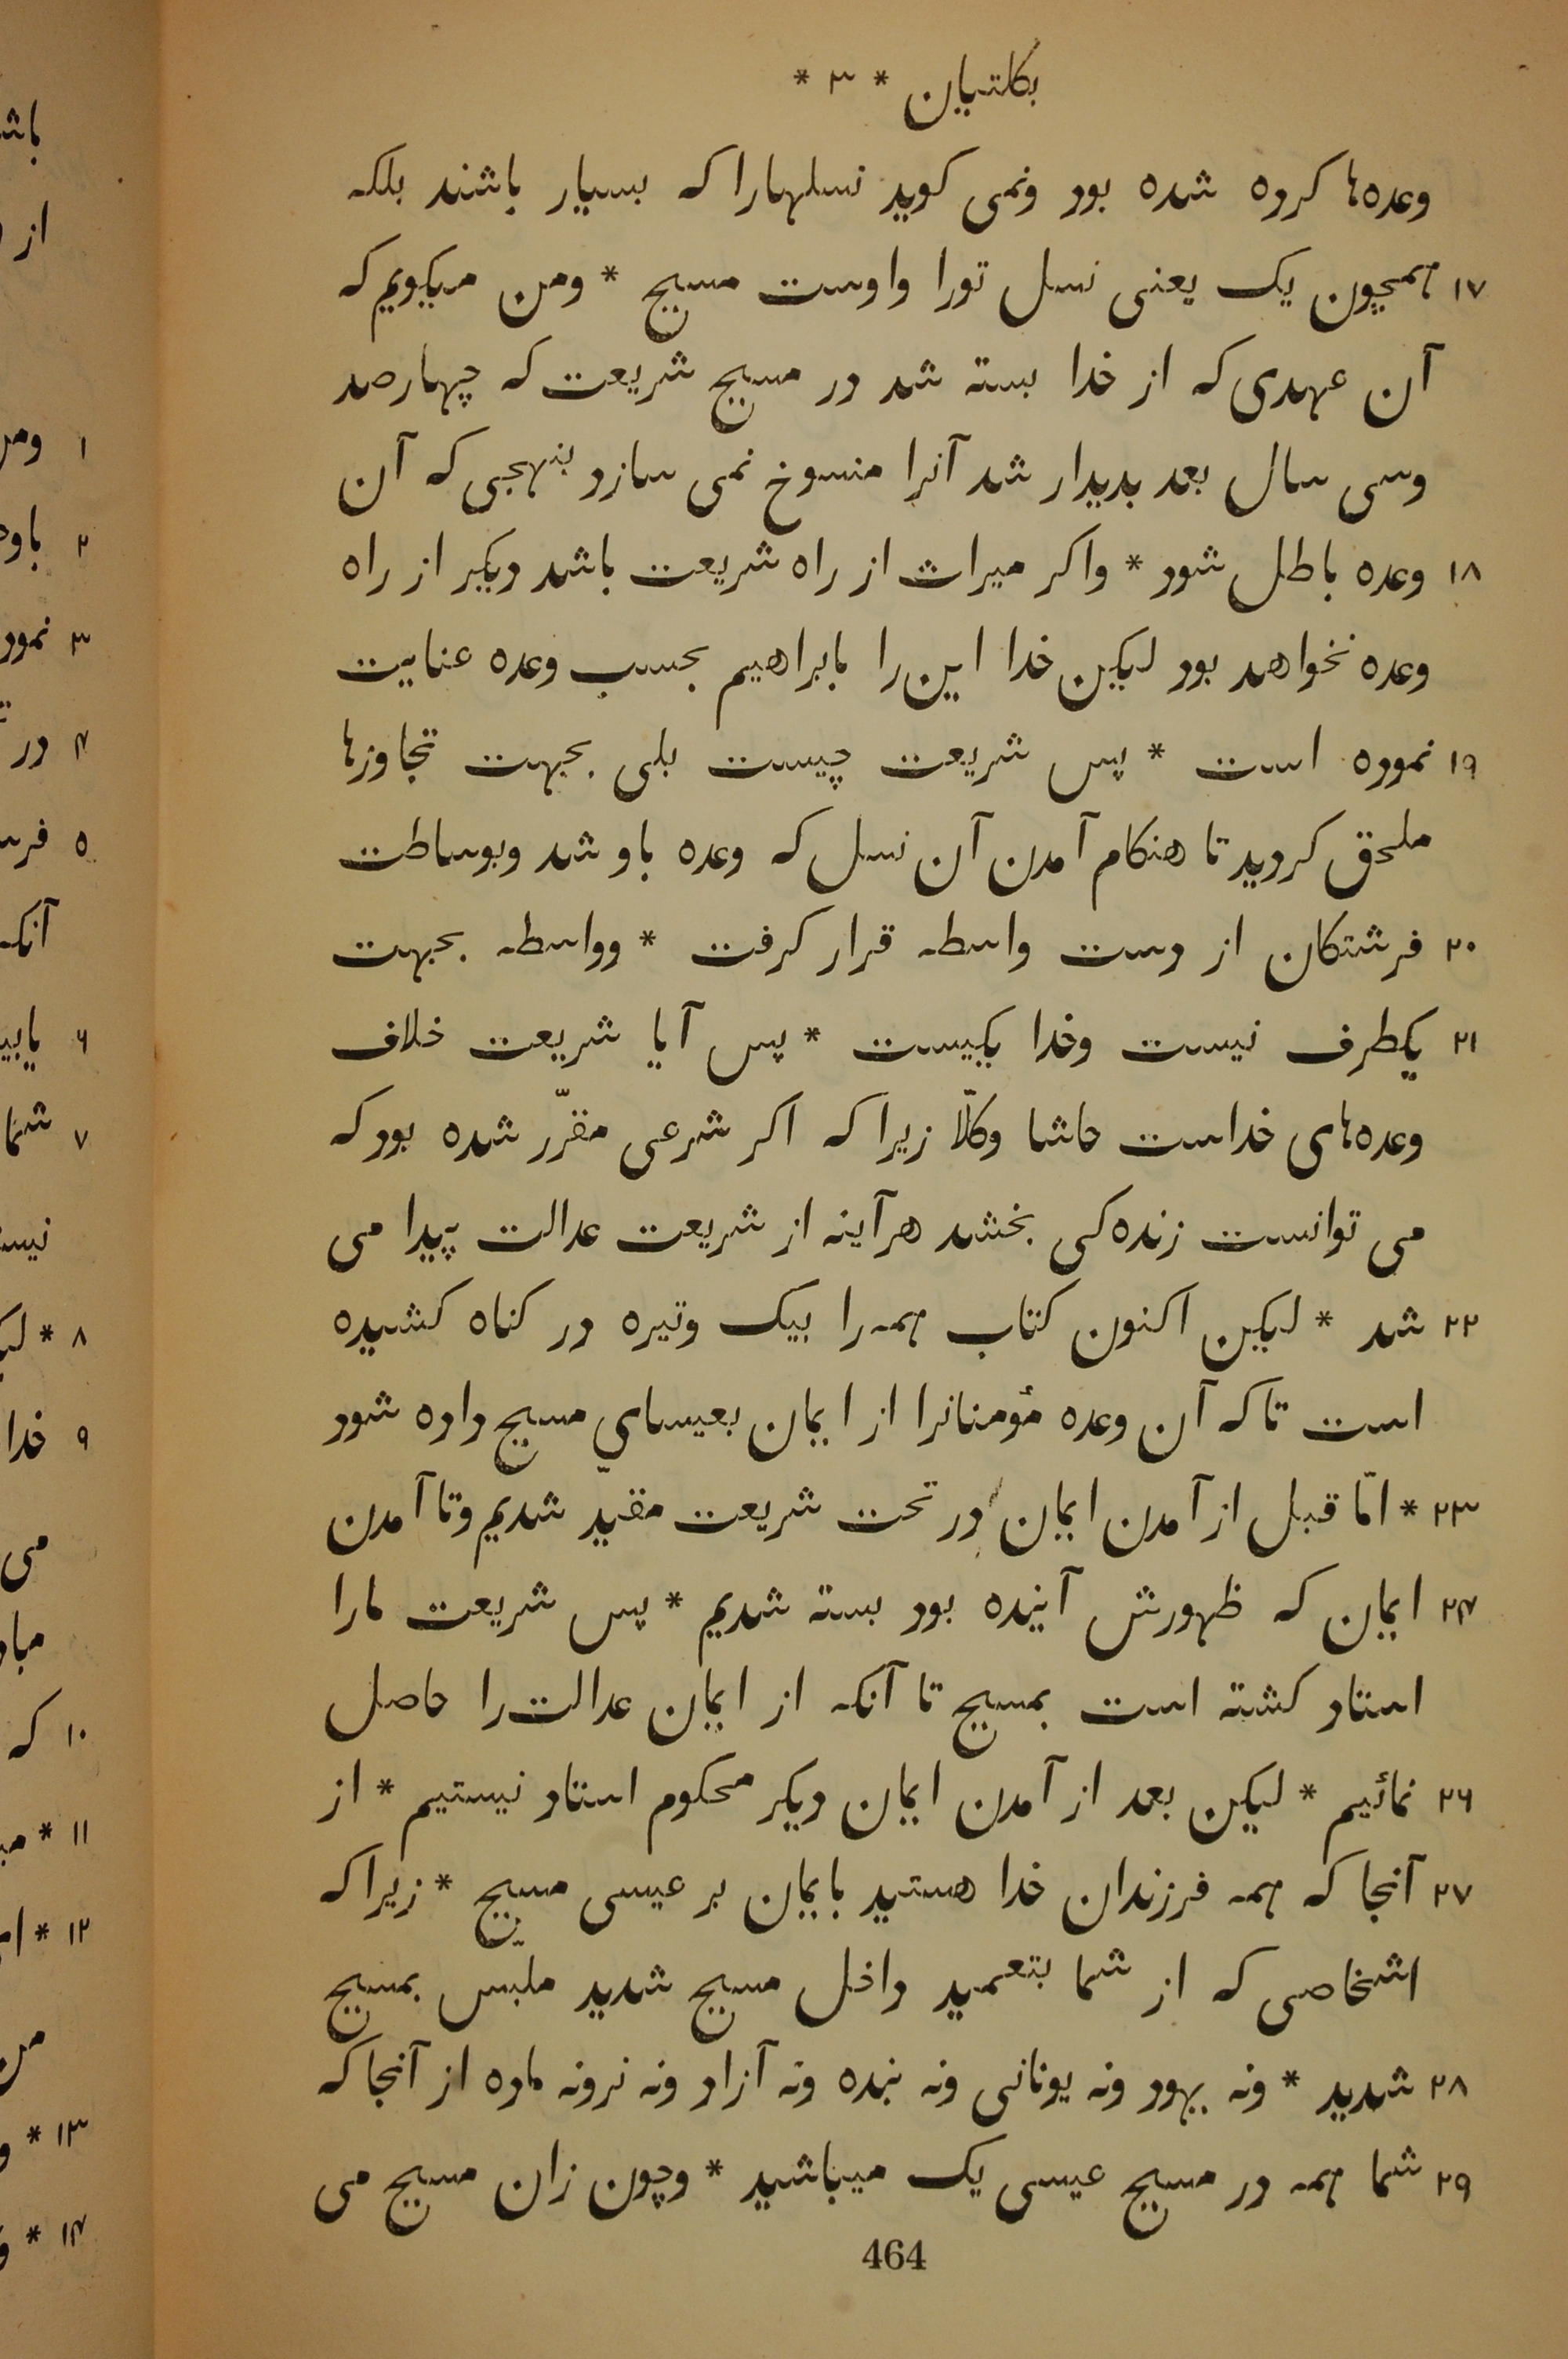 بکلتیان * ۳ *
وعده‌ها کرده شده بود ونمی کوید نسلهارا که بسیار باشند بلکه
۱۷ همچون یک یعنی نسل تورا واوست مسیح * ومن میکویم که
آن عهدی که از خدا بسته شد در مسیح شریعت که چهارصد
وسی سال بعد بدیدار شد آنرا منسوخ نمی سازد بنهجی که آن
۱۸ وعده باطل شود * واکر میراث از راه شریعت باشد دیکر از راه
وعده نخواهد بود لیکن خدا این را بابراهیم بحسب وعده عنایت
۱۹ نموده است * پس شریعت چیست بلی بجهت تجاوزها
ملحق کردید تا هنکام آمدن آن نسل که وعده باو شد وبوساطت
۲۰ فرشتکان از دست واسطه قرار کرفت * وواسطه بجهت
۲۱ یکطرف نیست وخدا یکیست * پس آیا شریعت خلاف
وعده‌های خداست حاشا وکلّا زیرا که اکر شرعی مقرّر شده بود که
می توانست زنده‌کی بخشد هرآینه از شریعت عدالت پیدا می
۲۲ شد * لیکن اکنون کتاب همه را بیک وتیره در کناه کشیده
است تا که آن وعده مؤمنانرا از ایمان بعیسای مسیح داده شود
۲۳ * امّا قبل از آمدن ایمان در تحت شریعت مقیّد شدیم وتا آمدن
۲۴ ایمان که ظهورش آینده بود بسته شدیم * پس شریعت مارا
استاد کشته است بمسیح تا آنکه از ایمان عدالت را حاصل
۲۶ نمائیم * لیکن بعد از آمدن ایمان دیکر محکوم استاد نیستیم * از
۲۷ آنجا که همه فرزندان خدا هستید بایمان بر عیسی مسیح * زیرا که
اشخاصی که از شما بتعمید داخل مسیح شدید ملبّس بمسیح
۲۸ شدید * ونه یهود ونه یونانی ونه بنده ونه آزاد ونه نرونه ماده از آنجا که
۲۹ شما همه در مسیح عیسی یک میباشید * وچون زان مسیح می
464
باشـ
از
۱ ومر
۲ باو
۳ نمود
۴ در
۵ فرسـ
آنکه
۶ یابیـ
۷ شما
نیستـ
۸ * لیـ
۹ خدا
می
مباد
۱۰ که
۱۱ * مبـ
۱۲ * ا
من
۱۳ * و
۱۴ *